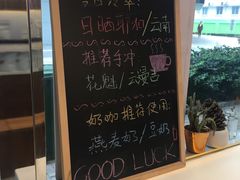 日晒耶加/云南
推荐手冲
花魁/云嫚
奶咖推荐使用:
燕麦奶/豆奶
GOOD LUCK